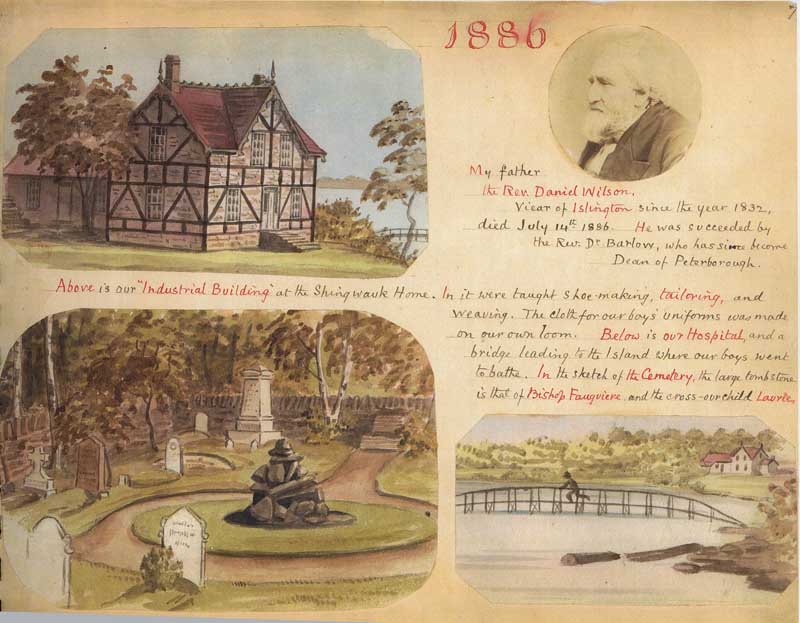 1886
My father
the Rev. Daniel Wilson,
Vicar of Islington since the year 1832,
died July 14th 1886. He was succeeded by
the Rev. Dr Barlow, who has since become
Dean of Peterborough.
Above is our "Industrial Building" at the Shingwauk Home. In it were taught shoe-making, tailoring, and
weaving. The cloth for our boys' uniforms was made
on our own loom. Below is our Hospital, and a
bridge leading to the Island where our boys went
to bathe. In the sketch of the Cemetery, the large tombstone
is that of Bishop Fauquiere, and the cross-our child Laurie.